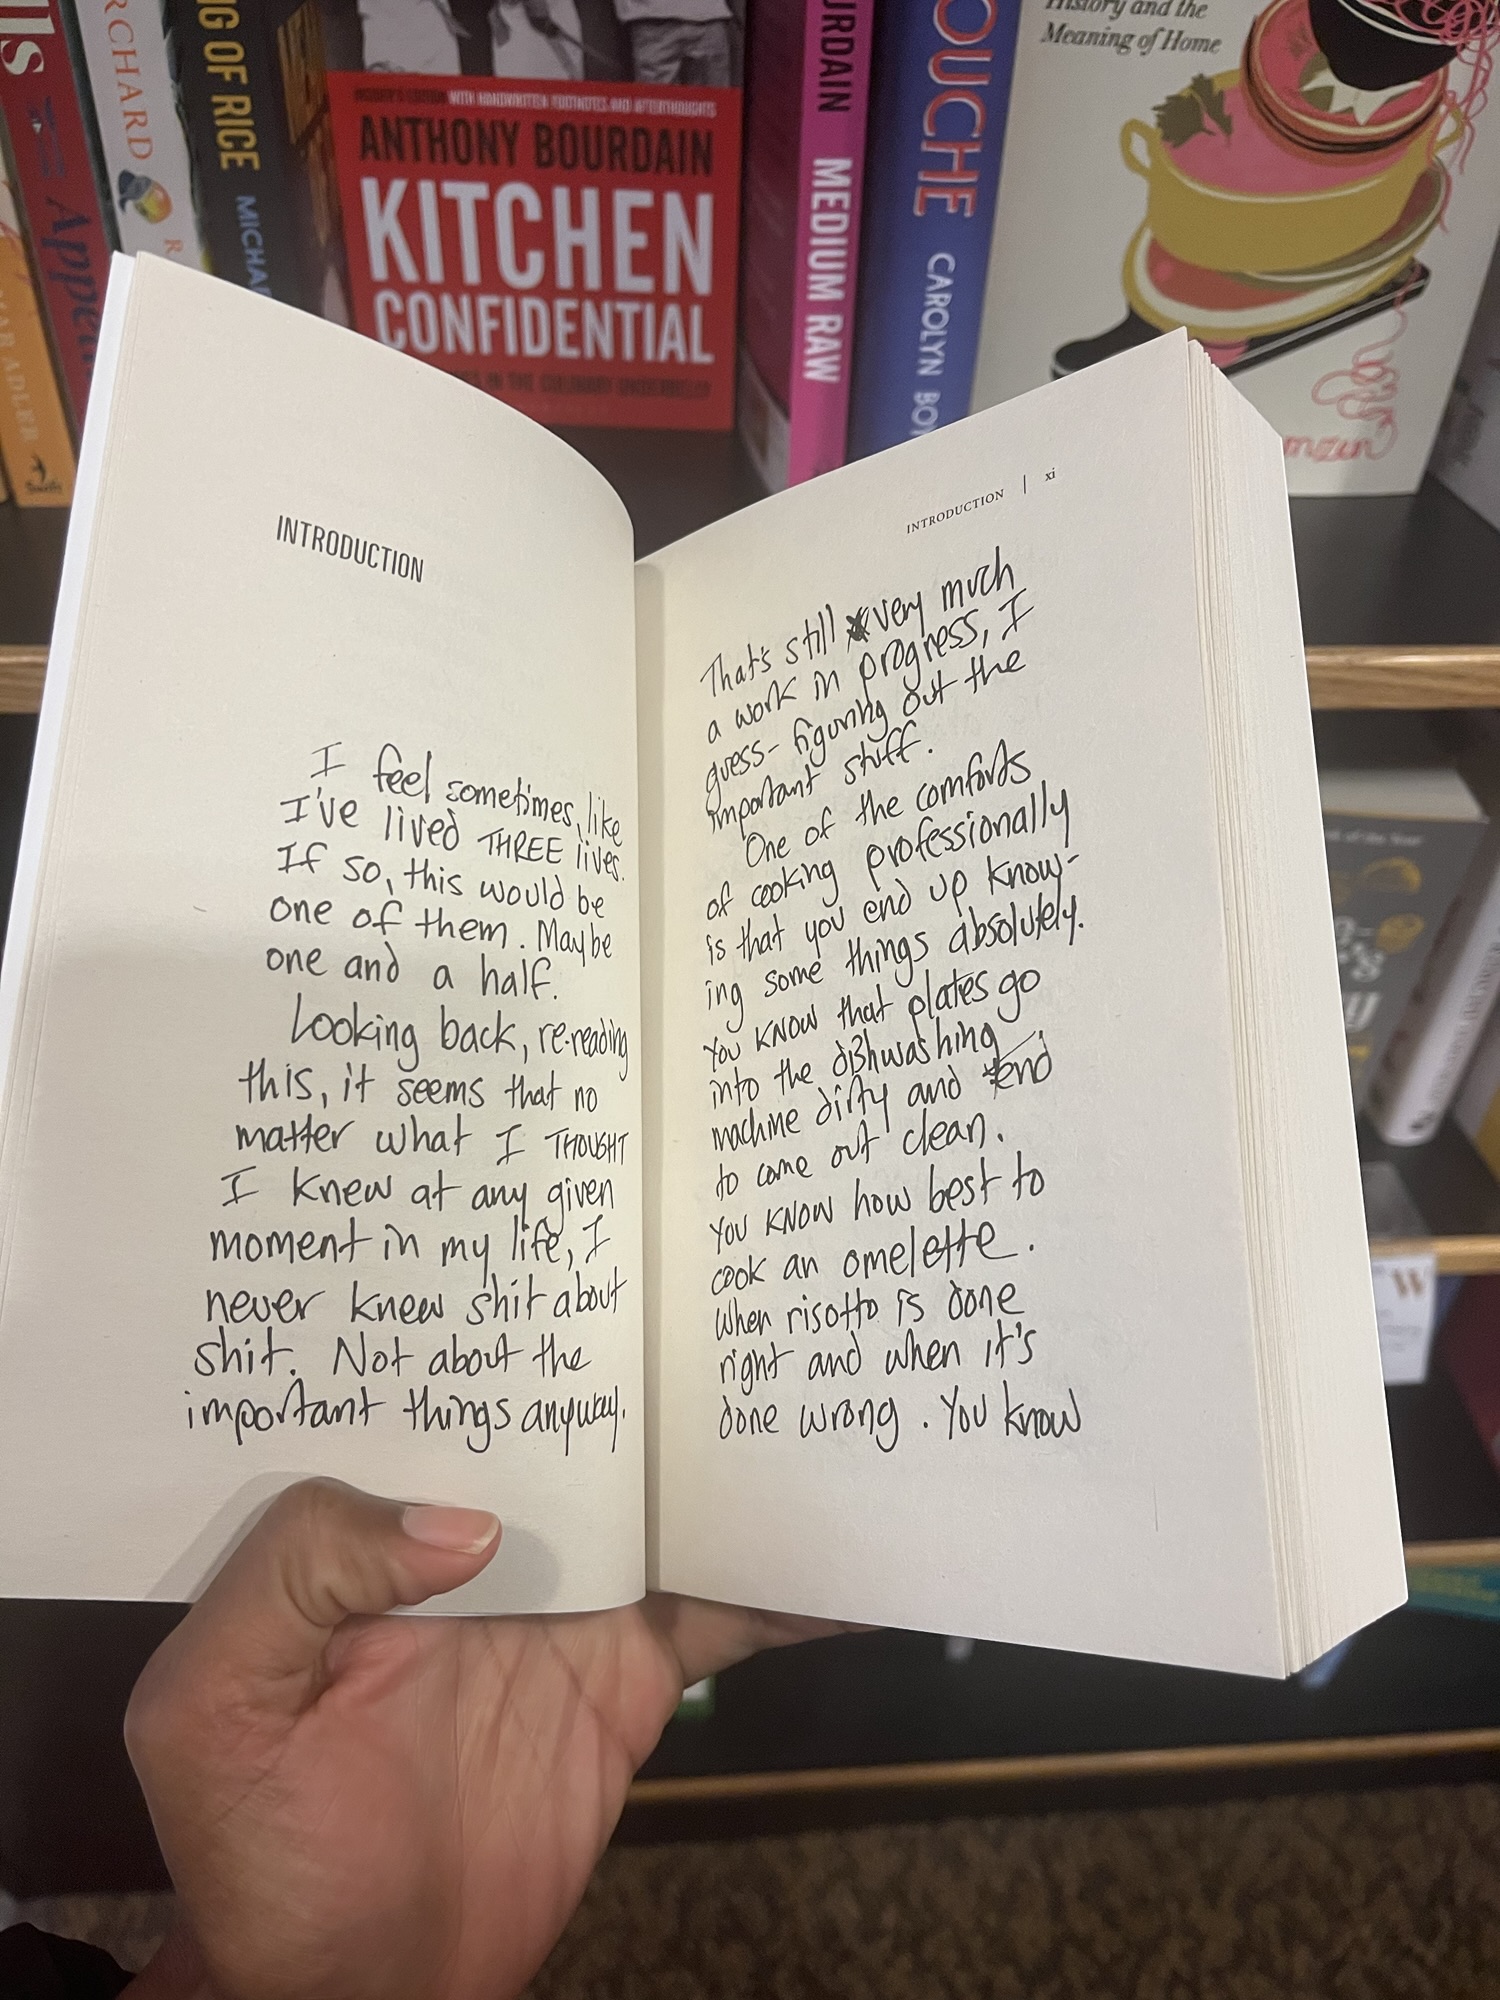 ORCHARD
NG OF RICE
MICHA
Appe
AR ADLER
INSIDER'S EDITION WITH HANDWRITTEN FOOTNOTES AND AFTERTHOUGHTS
ANTHONY BOURDAIN
KITCHEN
CONFIDENTIAL
IN THE CULINARY UNDERBELLY
URDAIN MEDIUM RAW
OUCHE CAROLYN BOY
History and the
Meaning of Home
mzen
INTRODUCTION
I feel sometimes, like
I've lived THREE lives.
If so, this would be
one of them. Maybe
one and a half.
Looking back, re-reading
this, it seems that no
matter what I THOUGHT
I knew at any given
moment in my life, I
never knew shit about
shit. Not about the
important things anyway.
INTRODUCTION | xi
That's still very much
a work in progress, I
guess- figuring out the
important stuff.
One of the comforts
of cooking professionally
is that you end up know-
ing some things absolutely.
You KNOW that plates go
into the dishwashing
machine dirty and tend
to come out clean.
You KNOW how best to
cook an omelette.
When risotto is done
right and when it's
done wrong. You know
W